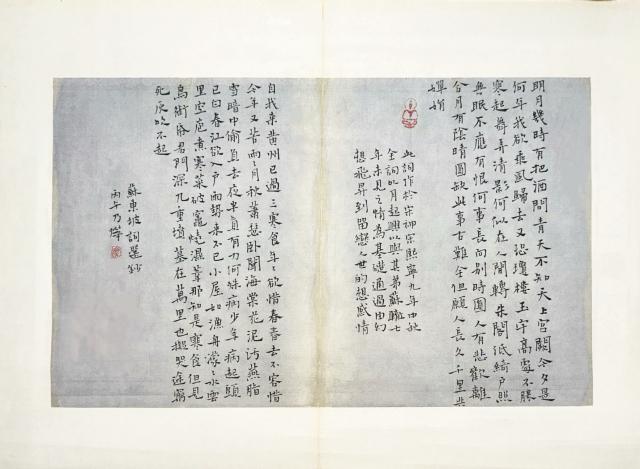 明月幾時有把酒問青天不知天上宮闕今夕是
何年我欲乘風歸去又恐瓊樓玉宇高處不勝
寒起舞弄清影何似在人間轉朱閣低綺戶照
無眠不應有恨何事長向別時圓人有悲歡離
合月有陰晴圓缺此事古難全但願人長久千里共
嬋娟
此詞作於宋神宗熙寧九年中秋
全詞以月起興以與其弟蘇轍七
年未見之情為基礎通過由幻
想飛昇到留戀人世的想感情
自我來黃州已過三寒食年々欲惜春春去不容惜
今年又苦雨兩月秋蕭瑟臥聞海棠花泥污燕脂
雪暗中偷負去夜半真有力何殊病少年病起頭
已白春江欲入戶雨勢來不已小屋如漁舟濛々水雲
里空庖煮寒菜破竈燒濕葦那知是寒食但見
烏銜帋君門深九重墳墓在萬里也擬哭途窮
死灰吹不起
蘇東坡詞選鈔
丙午乃